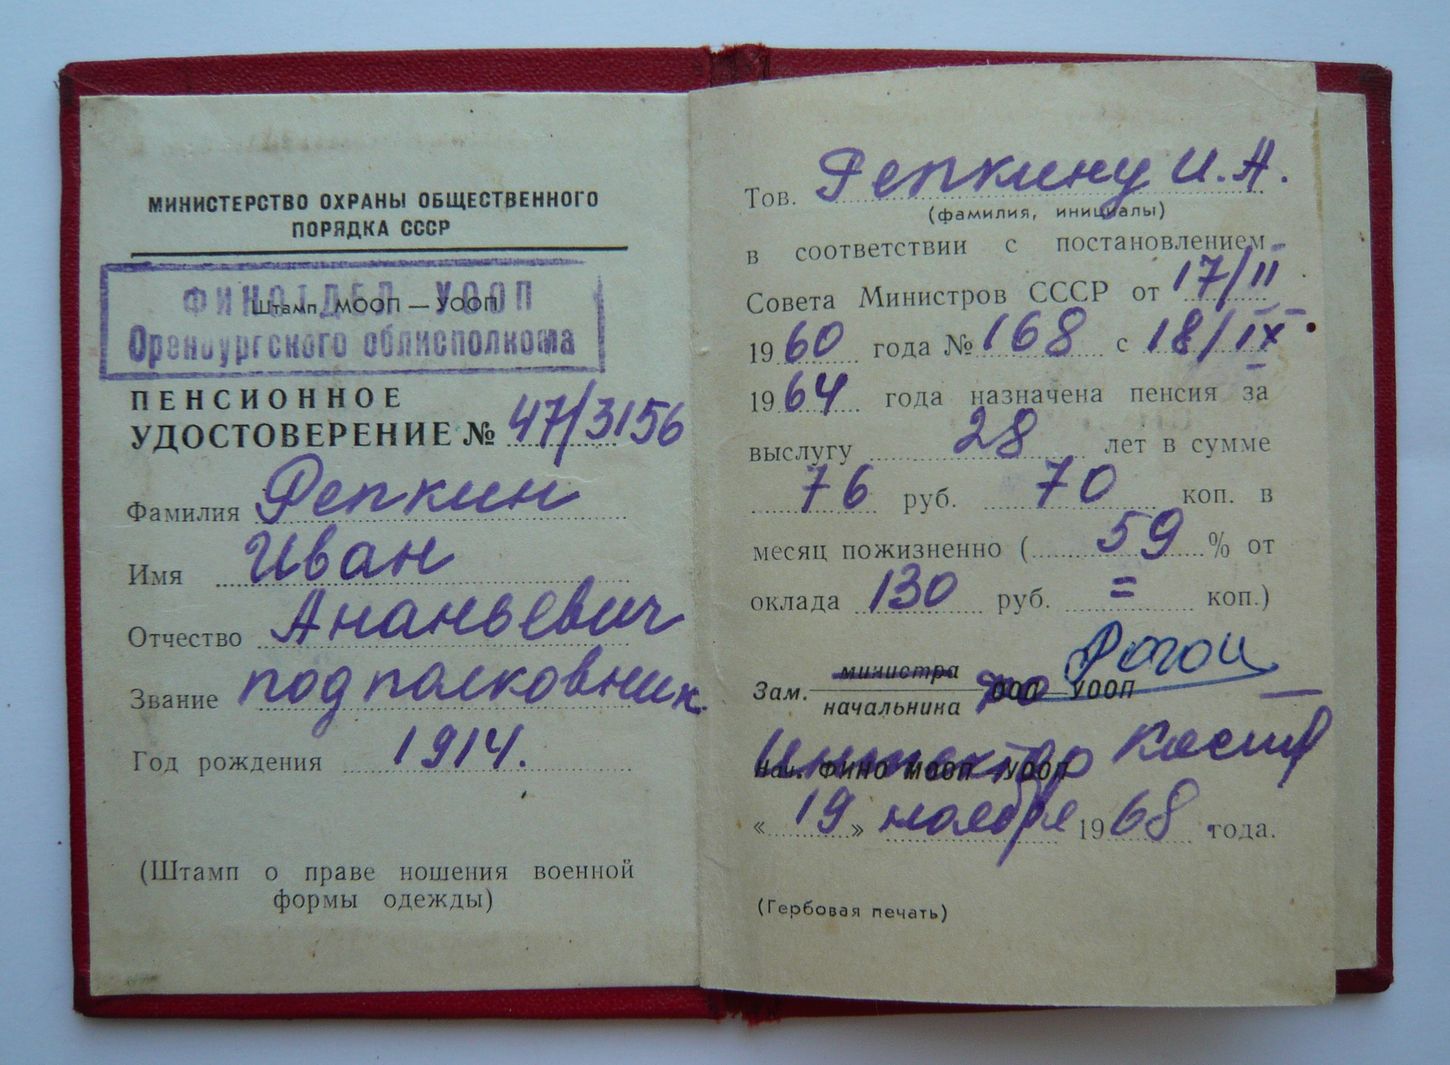 МИНИСТЕРСТВО ОХРАНЫ ОБЩЕСТВЕННОГО
ПОРЯДКА СССР
ФИНОТДЕЛ УООП
Штамп МООП — УООП
Оренбургского облисполкома
ПЕНСИОННОЕ
УДОСТОВЕРЕНИЕ № 47/3156
Фамилия Репкин
Имя Иван
Отчество Ананьевич
Звание подполковник
Год рождения 1914.
(Штамп о праве ношения военной
формы одежды)
Тов. Репкину И. А.
(фамилия, инициалы)
в соответствии с постановлением
Совета Министров СССР от 17/II
1960 года № 168 с 18/IX
1964 года назначена пенсия за
выслугу 28 лет в сумме
76 руб. 70 коп. в
месяц пожизненно (59% от
оклада 130 руб. = коп.)
министра
Зам. начальника ООП УООП
Инспектор
Нач. ФИНО МООП УООП
«19» ноября 1968 года.
(Гербовая печать)